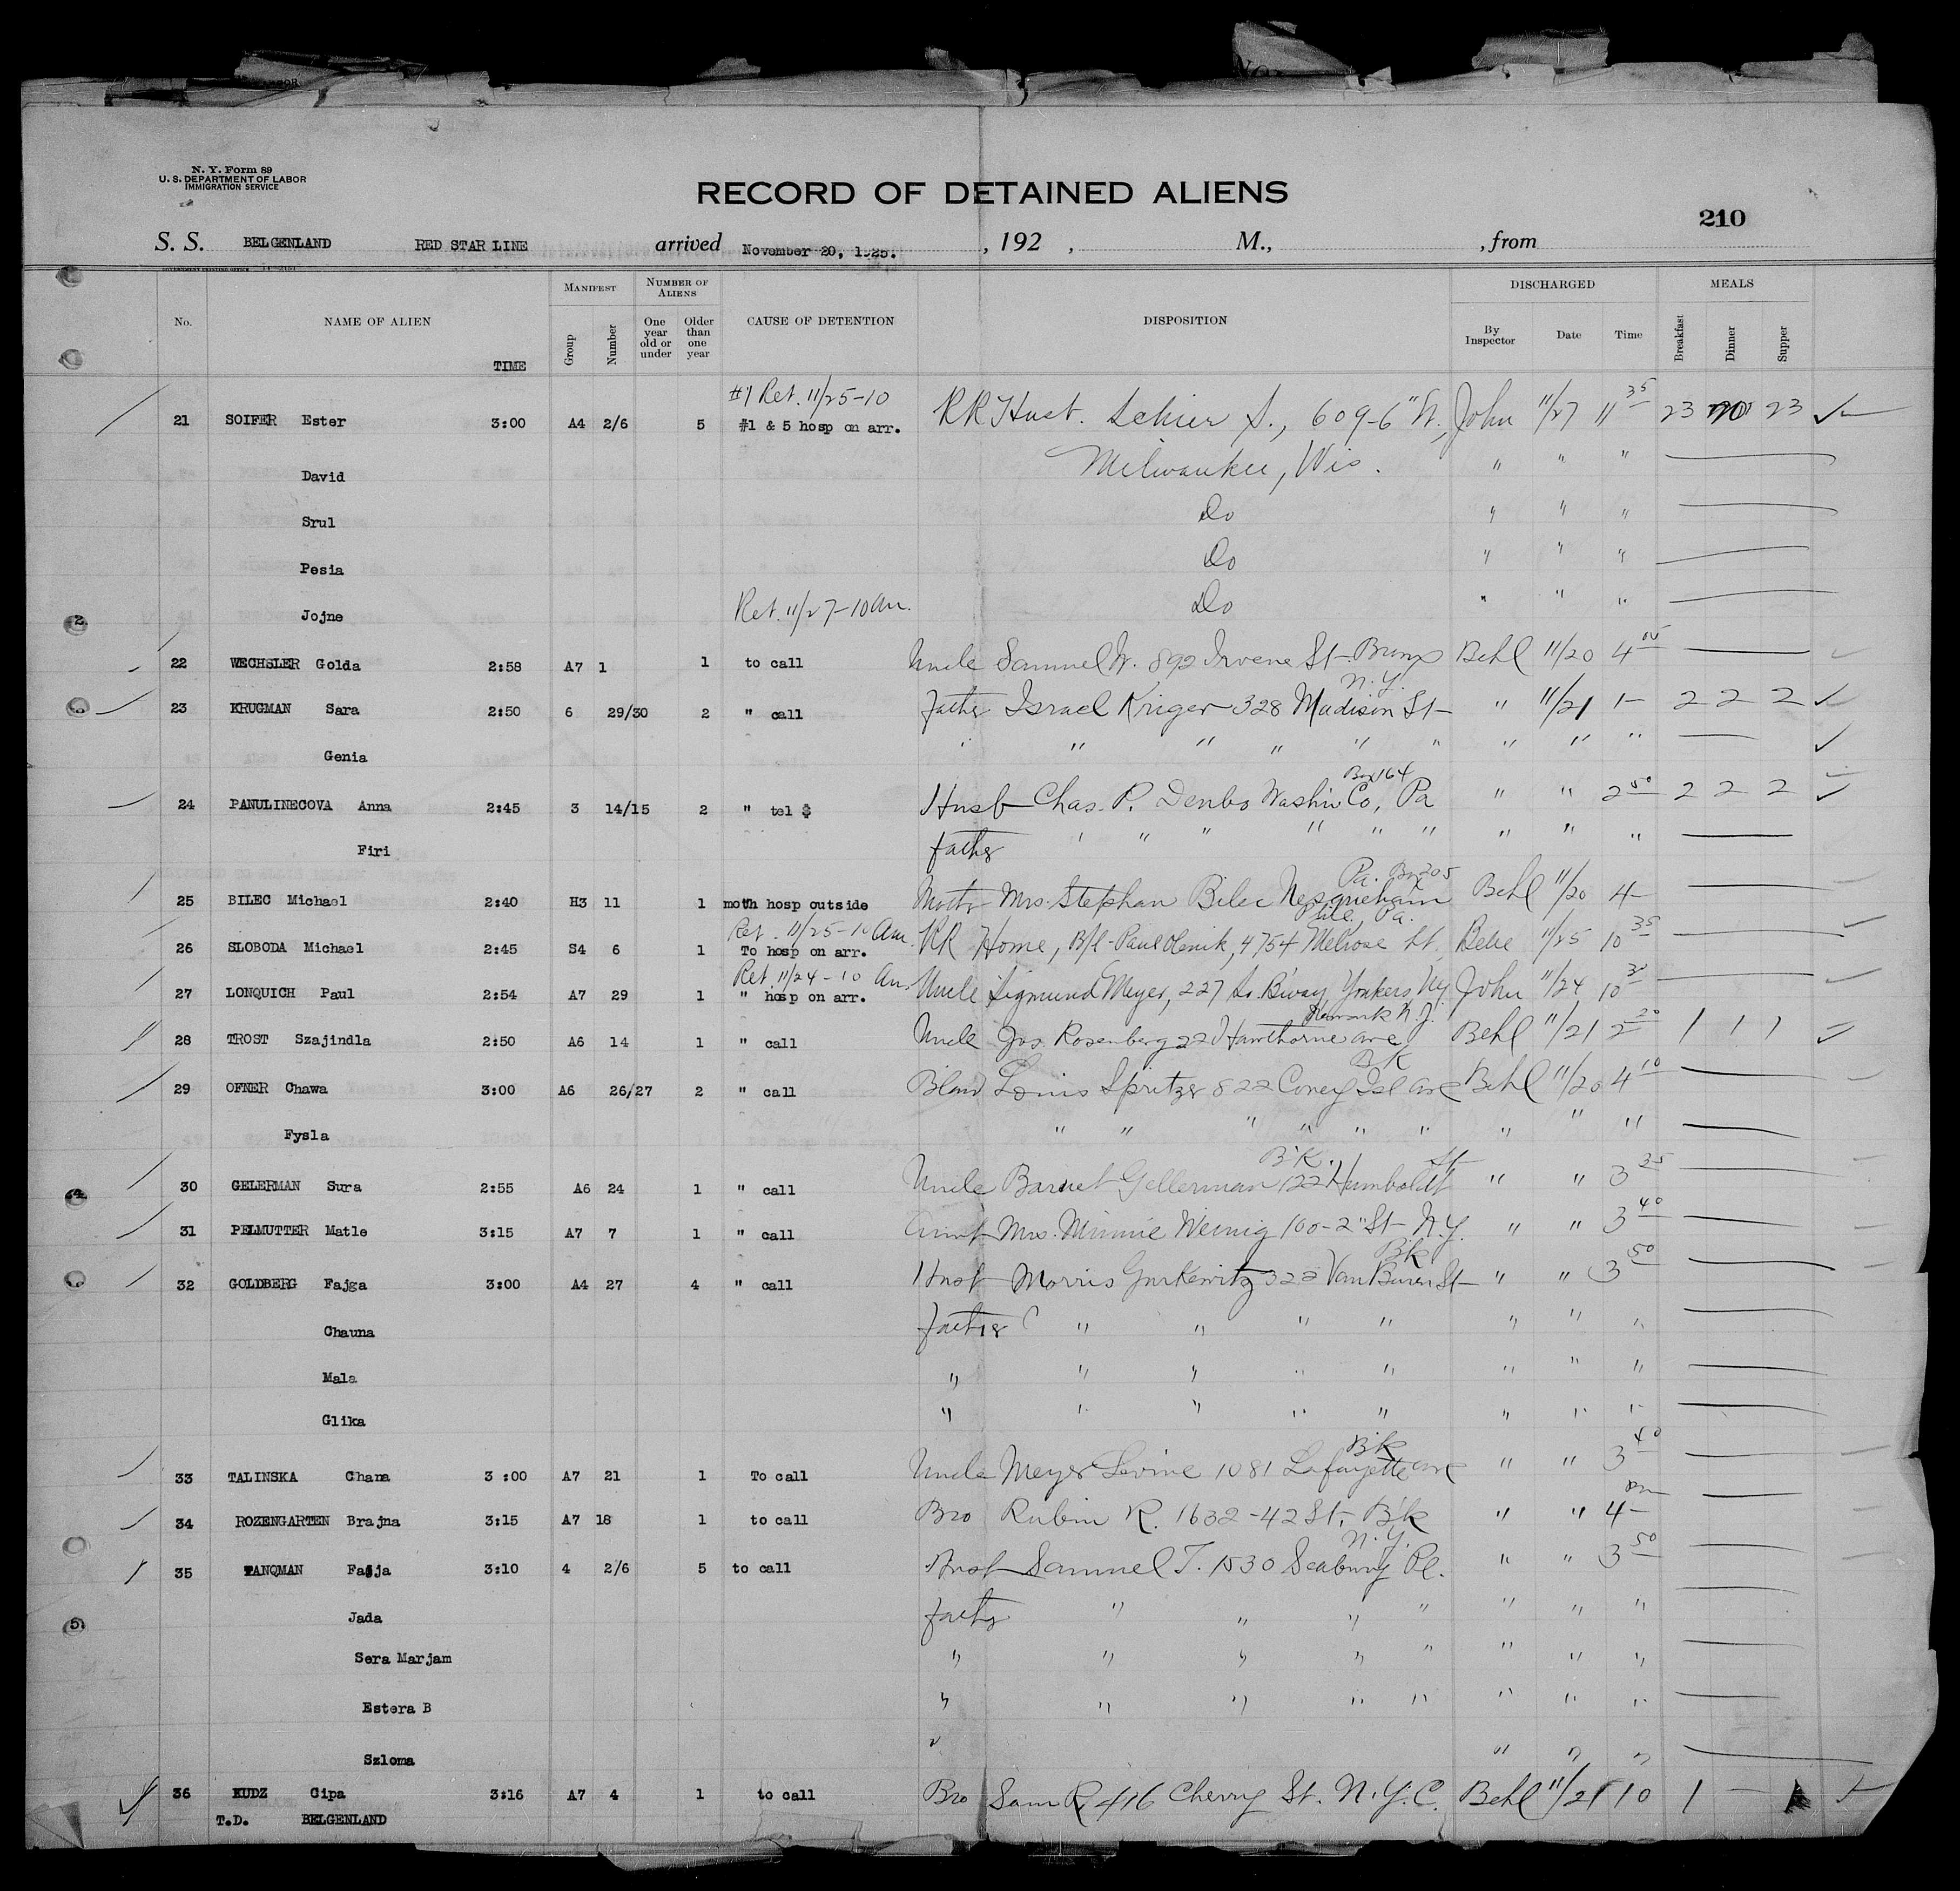 N. Y. Form 89
U. S. DEPARTMENT OF LABOR
IMMIGRATION SERVICE
RECORD OF DETAINED ALIENS
210
S. S. BELGENLAND RED STAR LINE arrived November 20, 1925. , 192 , M., , from
GOVERNMENT PRINTING OFFICE
No. NAME OF ALIEN TIME MANIFEST Group Number NUMBER OF ALIENS One year old or under Older than one year CAUSE OF DETENTION DISPOSITION DISCHARGED By Inspector Date Time MEALS Breakfast Dinner Supper
#1 Ret. 11/25-10
21 SOIFER Ester 3:00 A4 2/6 5 #1 & 5 hosp on arr. RR Hust. Schier S., 609-6" St., John 11/27 11 35 23 20 23
David Milwaukee, Wis. " " "
Srul Do " " "
Pesia Do " " "
Jojne Ret. 11/27-10 am. Do " " "
22 WECHSLER Golda 2:58 A7 1 1 to call Uncle Samuel W. 892 St-Bronx Behl 11/20 4 05
N.Y.
23 KRUGMAN Sara 2:50 6 29/30 2 " call Father Israel Kriger 328 Madison St- " 11/21 1- 2 2 2
Genia " " " " " " " " "
Box 164
24 PANULINECOVA Anna 2:45 3 14/15 2 " tel $ Husb Chas. P. Denbo Wash'n Co, Pa " " 2 50 2 2 2
Firi father " " " " " " " " "
Pa. Box 205
25 BILEC Michael 2:40 H3 11 1 moth hosp outside Mother Mrs. Stephan Bilec Nesquehoin Behl 11/20 4-
Ret. 11/25-10 am. Phil., Pa.
26 SLOBODA Michael 2:45 S4 6 1 To hosp on arr. RR Home, B/l-Paul Olenik, 4754 Melrose St, 11/25 10 35
Ret. 11/24-10 am
27 LONQUICH Paul 2:54 A7 29 1 " hosp on arr. Uncle Sigmund Meyer, 227 So. B'way, Yonkers, Ny. John 11/24 10 30
Newark N.J.
28 TROST Szajindla 2:50 A6 14 1 " call Uncle Jos. Rosenberg 22 Hawthorne ave Behl 11/21 2 20 1 1 1
BK
29 OFNER Chawa 3:00 A6 26/27 2 " call Louis Spritzer 822 Coney Isl ave Behl 11/20 4 10
Fysla " " " " " " " " "
B'K. St
30 GELERMAN Sura 2:55 A6 24 1 " call Uncle Barnet Gellerman 122 Humboldt " " 3 35
31 PELMUTTER Matle 3:15 A7 7 1 " call Aunt Mrs. Minnie Wernig 100-2" St- N.Y. " " 3 40
Bk
32 GOLDBERG Fajga 3:00 A4 27 4 " call Husb Morris Gurkewitz 322 Van Buren St- " " 3 50
Chauna father " " " " " " "
Mala " " " " " " " "
Glika " " " " " " " "
B'k
33 TALINSKA Chana 3 :00 A7 21 1 To call Uncle Meyer Levine 1081 Lafayette ave " " 3 40
34 ROZENGARTEN Brajna 3:15 A7 18 1 to call Bro Rubin R. 1632-42 St, B'k " " 4- pm
N.Y.
35 TANQMAN Fajja 3:10 4 2/6 5 to call Husb Samuel T. 1530 Seabury Pl. " " 3 50
Jada father " " " " " " "
Sera Marjam " " " " " " " "
Estera B " " " " " " " "
Szloma " " " "
36 KUDZ Cipa 3:16 A7 4 1 to call Bro Sam R, 416 Cherry St. N.Y.C. Behl 11/21 10 1 - 1
T.D. BELGENLAND